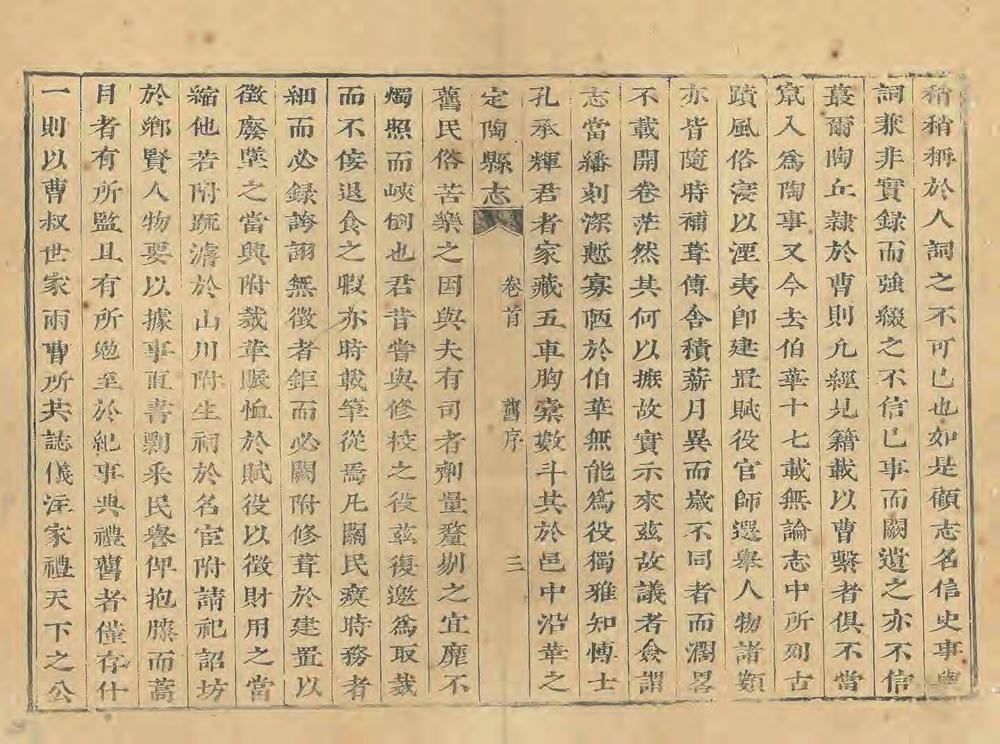 稍稍稱於人詞之不可已也如是顧志名信史事與
詞兼非實録而強綴之不信已事而闕遺之亦不信
蕞爾陶丘隷於曹則凢經見籍載以曹繫者俱不當
竄入爲陶事又今去伯華十七載無論志中所列古
蹟風俗寖以湮夷卽建置賦役官師選舉人物諸類
亦皆隨時補葺傳舍積薪月異而歲不同者而濶畧
不載開卷茫然其何以摭故實示來茲故議者僉謂
志當繙刻深慙寡陋於伯華無能爲役獨雅知博士
孔承輝君者家藏五車胸橐數斗其於邑中沿革之
定陶縣志 卷首 舊序 三
舊民俗苦樂之因與夫有司者劑量釐剔之宜靡不
燭照而峽倒也君昔嘗與修校之役茲復邀爲取裁
而不佞退食之暇亦時載筆從焉凢關民瘼時務者
細而必録誇詡無徵者鉅而必闕附修葺於建置以
徵廢墜之當興附裁革賑恤於賦役以徵財用之當
縮他若附䟽濬於山川附生祠於名宦附請祀詔坊
於鄉賢人物要以據事直書剽釆民譽俾抱牘而蒿
目者有所監且有所勉至於紀事典禮舊者僅存什
一則以曹叔世家兩曹所共誌儀注家禮天下之公